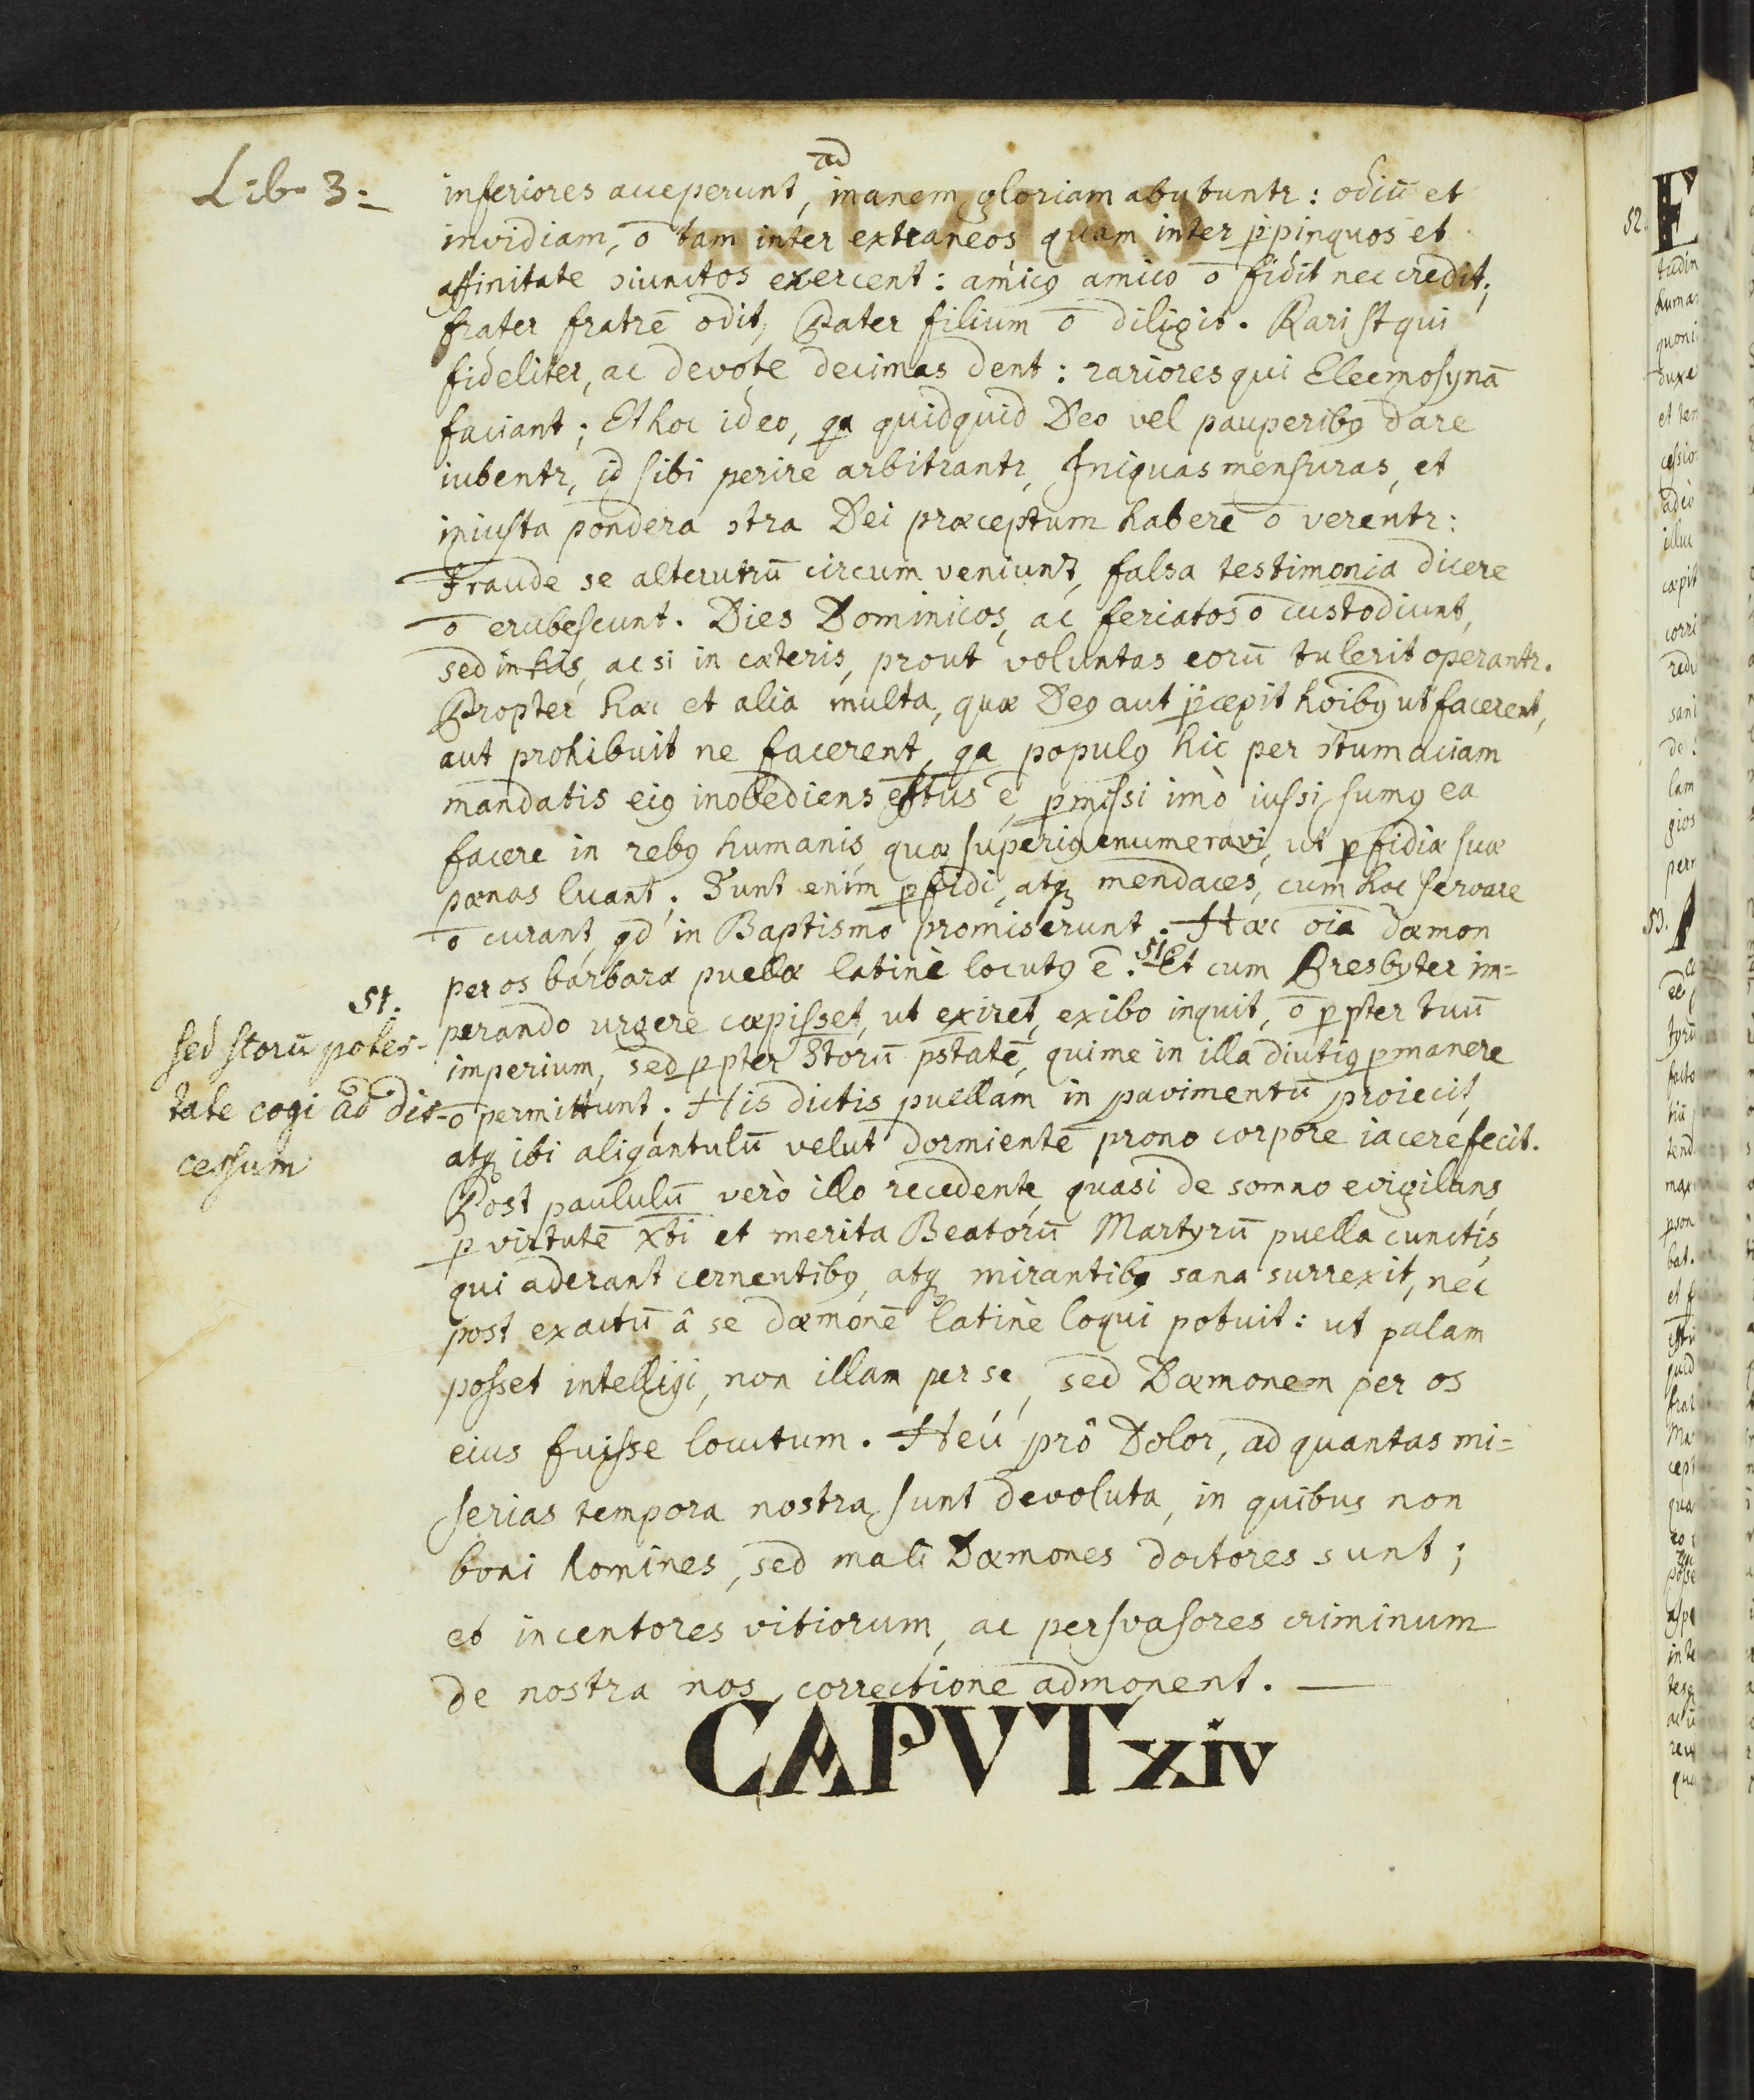 Lib. 3.
inferiores acceperunt, ad inanem gloriam abutuntr: odiū et
invidiam, ō tam inter extraneos quam inter ppinquos et
affinitate ɔiunctos exercent: amicꝰ amico ō fidit nec credit;
frater fratrē odit, Pater filium ō diligit. Rari st qui
fideliter, ac devote decimas dent: rariores qui Eleemosynā
faciant; Et hoc ideo, qa quidquid Deo vel pauperibꝰ dare
iubentr, id sibi perire arbitrantr, Iniquas mensuras, et
iniusta pondera ɔtra Dei præceptum habere ō verentr:
Fraude se alterutrū circum veniunt, falsa testimonia dicere
ō erubescunt. Dies Dominicos, ac feriatos ō custodiunt,
sed in his, ac si in cæteris, prout voluntas eorū tulerit operantr.
Propter hæc et alia multa, quæ Deꝰ aut p̄cæpit hoībꝰ ut facerent,
aut prohibuit ne facerent, qa populꝰ hic per ɔtumaciam
mandatis eiꝰ inobediens effctus ē, pmissi imò iussi sumꝰ ea
facere in rebꝰ humanis, quæ superiꝰ enumeravi, ut pfidiæ suæ
pœnas luant. Sunt enim pfidi, atqꝫ mendaces, cum hoc servare
ō curant, qd in Baptismo promiserunt. Hæc oīa dæmon
per os barbaræ puellæ latinè locutꝰ ē. 51 Et cum Presbyter im=
51.
perando urgere cæpisset, ut exiret, exibo inquit, ō ppter tuū
sed storū potes-
imperium, sed ppter Storū pstatē, qui me in illa diutiꝰ pmanere
tate cogi ad dis-
ō permittunt. His dictis puellam in pavimentū proiecit,
cessum
atqꝫ ibi aliqantulū velut dormientē prono corpore iacere fecit.
Post paululū verò illo recedente, quasi de somno evigilans,
p virtutē xti et merita Beatorū Martyrū puella cunctis,
qui aderant cernentibꝰ, atqꝫ mirantibꝰ sana surrexit, nec
post exactū â se dæmonē latinè loqui potuit: ut palam
posset intelligi, non illam per se, sed Dæmonem per os
eius fuisse locutum. Heú prô Dolor, ad quantas mi=
serias tempora nostra sunt devoluta, in quibus non
boni homines, sed mali Dæmones doctores sunt;
et incentores vitiorum, ac persvasores criminum
de nostra nos correctione admonent. —
CAPVT xiv